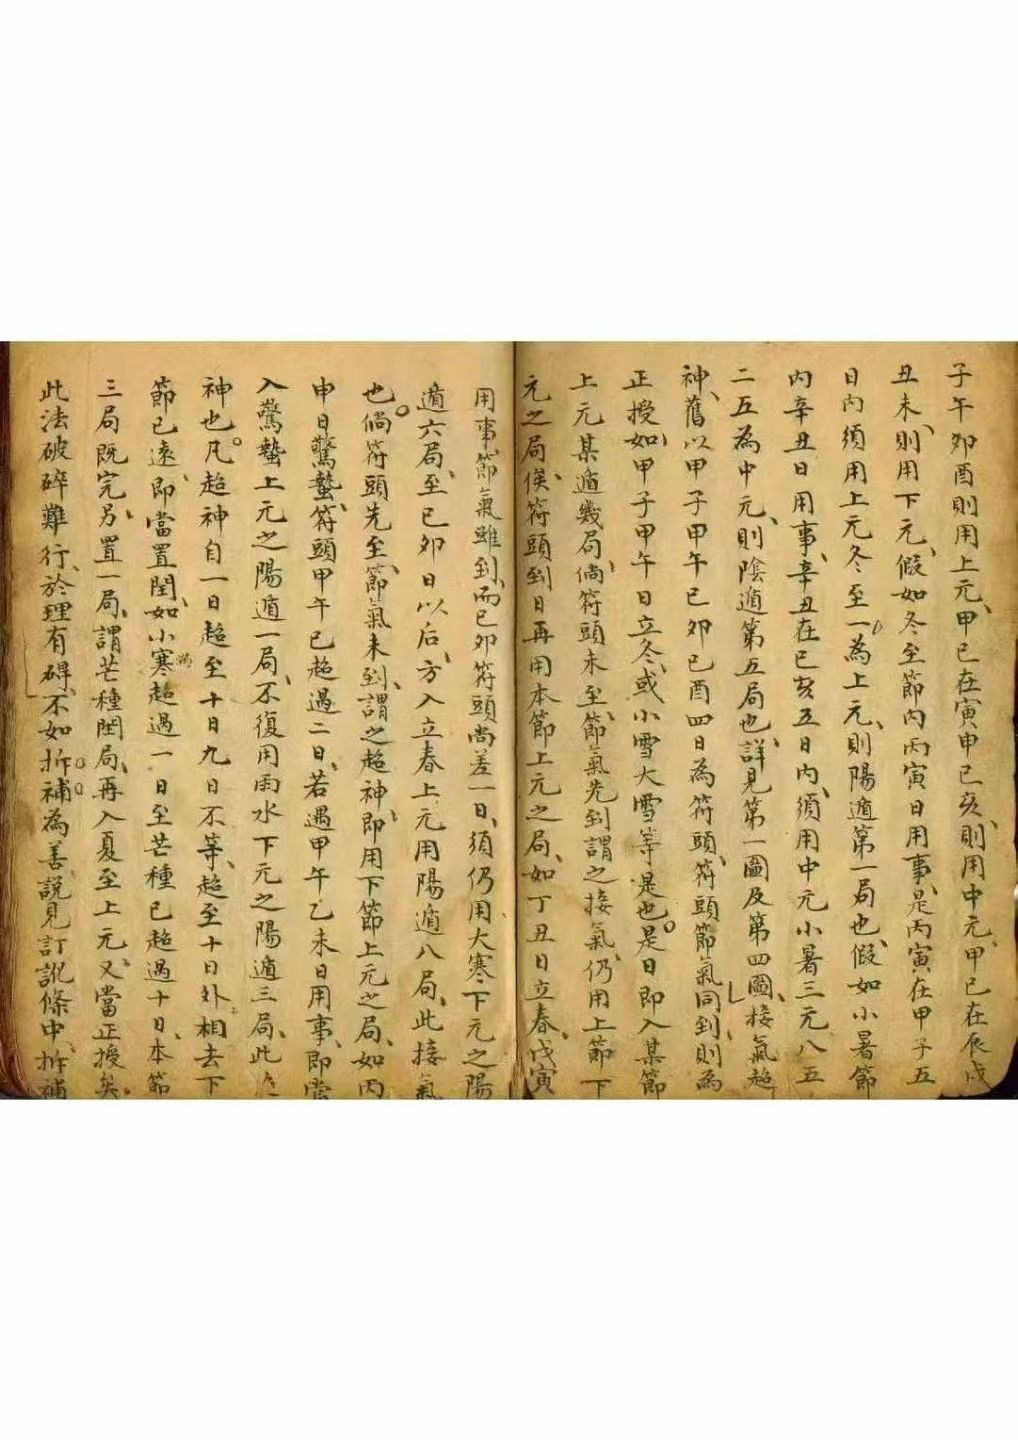 子午卯酉則用上元、甲己在寅申己亥、則用中元、甲己在辰戌
丑未、則用下元、假如冬至節內丙寅日用事、是丙寅在甲子五
日內須用上元冬至一為上元、則陽遁第一局也、假如小暑節
內辛丑日用事、辛丑在己亥五日內、須用中元小暑三元八五
二五為中元、則陰遁第五局也、詳見第一圖及第四圖、接氣超
神、舊以甲子甲午己卯己酉四日為符頭、符頭節氣同到、則為
正授、如甲子甲午日立冬、或小雪大雪等是也。是日即入某節
上元某遁幾局、倘符頭未至、節氣先到謂之接氣、仍用上節下
元之局、俟符頭到日再用本節上元之局、如丁丑日立春、戊寅
用事、節氣雖到、而己卯符頭尚差一日、須仍用大寒下元之陽
遁六局、至己卯日以后、方入立春上元用陽遁八局、此接氣
也。倘符頭先至、節氣未到、謂之超神、即用下節上元之局、如丙
申日驚蟄、符頭甲午已超過二日、若遇甲午乙未日用事、即當
入驚蟄上元之陽遁一局、不復用雨水下元之陽遁三局、此
神也。凡超神自一日超至十日九日不等、超至十日外相去下
節已遠、即當置閏、如小寒超過一日至芒種已超過十日、本節
三局既完、另置一局、謂芒種閏局、再入夏至上元、又當正授矣、
此法破碎難行、於理有碍、不如拆補為善、說見訂訛條中、拆補